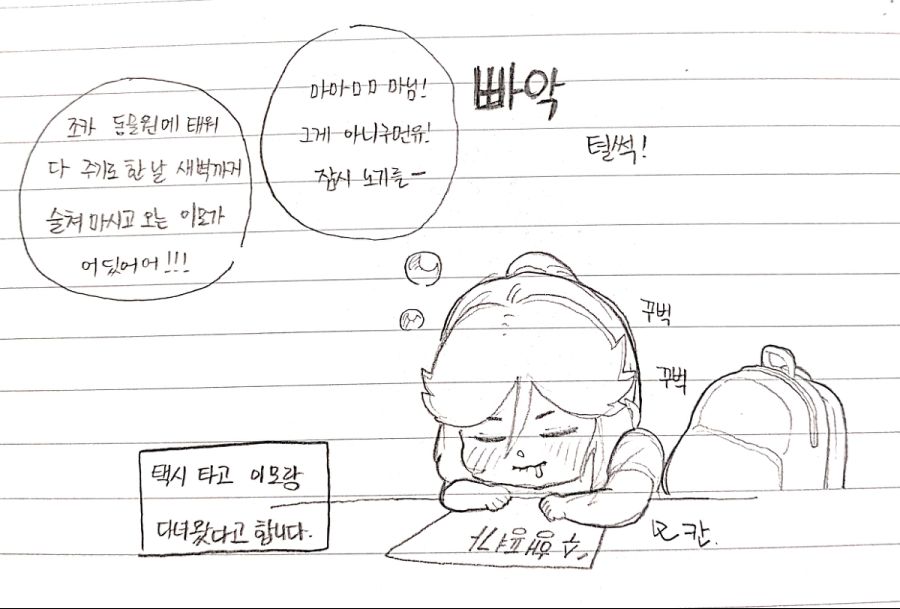 조카 동물원에 태워
다 주기로 한 날 새벽까지
술쳐마시고 오는 이모가
어딨어어!!!
마아ㅁㅁ 마님!
그게 아니구먼유!
잠시 노기를ㅡ
빠악
털썩!
꾸벅
꾸벅
택시 타고 이모랑
다녀왔다고 합니다.
모칸.